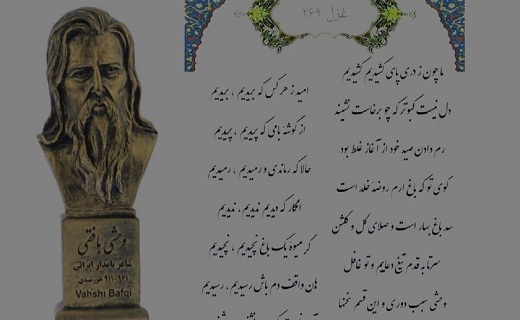 غزل ۲۶۹
ما چون ز دری پای کشیدیم کشیدیم
امید ز هر کس که بریدیم ، بریدیم
دل نیست کبوتر که چو برخاست نشیند
از گوشهٔ بامی که پریدیم ، پریدیم
رم دادن صید خود از آغاز غلط بود
حالا که رماندی و رمیدیم ، رمیدیم
کوی تو که باغ ارم روضهٔ خلد است
انگار که دیدیم ندیدیم، ندیدیم
سد باغ بهار است و صلای گل و گلشن
گر میوهٔ یک باغ نچیدیم ، نچیدیم
سرتا به قدم تیغ دعاییم و تو غافل
هان واقف دم باش رسیدیم، رسیدیم
وحشی سبب دوری و این قسم سخنها
وحشی بافقی
شاعر نامدار ایرانی
۹۱۱-۹۶۱ خورشیدی
Vahshi Bafqi